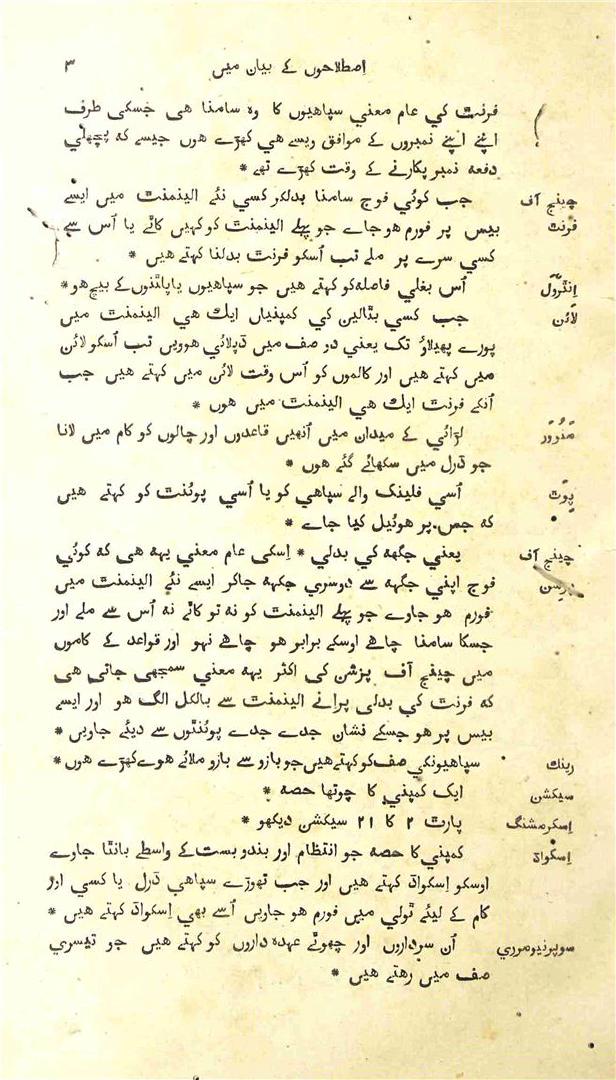 اِصطلاحوں کے بیان میں ۳
فرنٹ کي عام معني سپاهیوں کا وہ سامنا هی جسکی طرف
اپنے اپنے نمبروں کے موافق ویسے هی کھڑے هوں جیسے کہ پچھلي
دفعہ نمبر پکارنے کے وقت کھڑے تھے *
چینج آف جب کوئي فوج سامنا بدلکر کسي نئے الینمنٹ میں ایسے
فرنٹ بیس پر فورم هوجاے جو پہلے الینمنٹ کو کہیں کاٹے یا اُس سے
کسي سرے پر ملے تب اُسکو فرنٹ بدلنا کہتے هیں *
اِنٹرول اُس بغلي فاصلہ کو کہتے هیں جو سپاهیوں یا پلٹنوں کے بیچ هو *
لائن جب کسي بٹالین کي کمپنیاں ایك هي الینمنٹ میں
پورے پھیلاؤ تک یعني دو صف میں ڈپلائي هوویں تب اُسکو لائن
میں کہتے هیں اور کالموں کو اُس وقت لائن میں کہتے هیں جب
اُنکے فرنٹ ایك هي الینمنٹ میں هوں *
مَنُووَر لڑائي کے میدان میں اُنھیں قاعدوں اور چالوں کو کام میں لانا
جو ڈرل میں سکھائے گئے هوں *
پِوَٹ اُسي فلینک والے سپاهي کو یا اُسي پوئنٹ کو کہتے هیں
کہ جس پر هوئیل کیا جاے *
چینج آف یعني جگھہ کي بدلي * اِسکی عام معني یہہ هی کہ کوئي
پزِسن فوج اپني جگھہ سے دوسري جگھہ جاکر ایسے نئے الینمنٹ میں
فورم هو جاوے جو پہلے الینمنٹ کو نہ تو کاٹے نہ اُس سے ملے اور
جسکا سامنا چاهے اوسکے برابر هو چاهے نہو اور قواعد کے کاموں
میں چینج آف پزشن کی اکثر یہہ معني سمجھی جاتی هی
کہ فرنٹ کي بدلی پرانے الینمنٹ سے بالکل الگ هو اور ایسے
بیس پر هو جسکے نشان جدے جدے پوئنٹوں سے دیئے جاویں *
رینك سپاهیونکي صف کو کہتے هیں جو بازو سے بازو ملائے هوے کھڑے هوں *
سیکشن ایک کمپنی کا چوتھا حصہ *
اِسکرمشنگ پارٹ ۲ کا ۲۱ سیکشن دیکھو *
اِسکواڈ کمپني کا حصہ جو انتظام اور بندوبست کے واسطے بانٹا جاوے
اوسکو اِسکواڈ کہتے هیں اور جب تھوڑے سپاهي ڈرل یا کسی اور
کام کے لیئے ٹولي میں فورم هو جاویں اُسے بھی اِسکواڈ کہتے هیں *
سوپرنیومرري اُن سرداروں اور چھوٹے عہدہ داروں کو کہتے هیں جو تیسري
صف میں رهتے هیں *